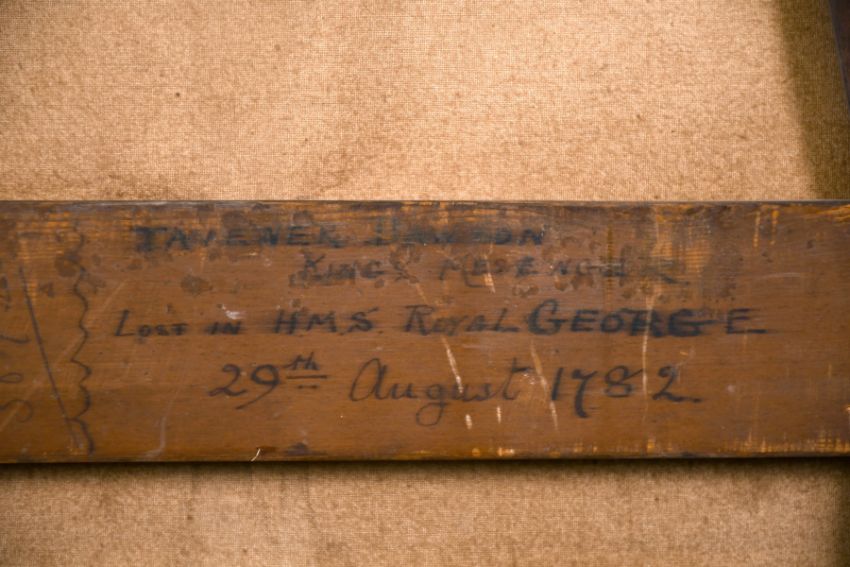 TAVENER DAWSON
KINGS MESSENGER
LOST IN H.M.S. ROYAL GEORGE
29th August 1782.